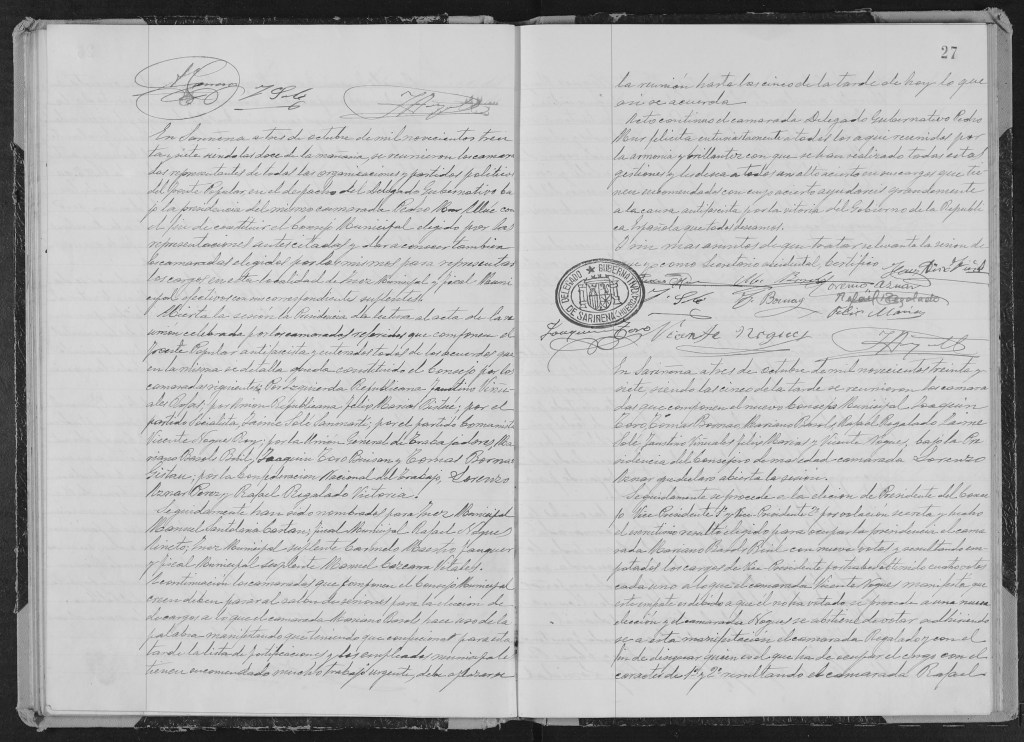 En Sariñena a tres de octubre de mil novecientos trein
ta y siete siendo las doce de la mañana, se reunieron los camara
das representantes de todas las organizaciones y partidos políticos
del Frente Popular en el despacho del Delegado Gubernativo ba
jo la presidencia del mismo camarada Pedro Mur Allué con
el fin de constituir el Consejo Municipal elegido por las
representaciones antes citadas y dar a conocer tambien
los camaradas elegidos por los mismos para representar
los cargos en esta localidad de Juez Municipal y fiscal Muni
cipal efectivos con sus correspondientes suplentes.
Abierta la sesión la Presidencia da lectura al acta de la re
unión celebrada por los camaradas referidos que componen el
Frente Popular antifascista y enterados todos de los acuerdos que
en la misma se detalla queda constituido el Consejo por los
camaradas siguientes: Por Izquierda Republicana Faustino Viñu
ales Rosas, por Union Republicana Felix Maria ; por el
partido Socialista, Jaime Solé Sanmartí; por el partido Comunista
Vicente Nogues Rey; por la Unión General de Trabajadores Ma
riano Barols Bril, Joaquin Toro Buisan y Tomas Bornao
Gistau; por la Confederacion Nacional del Trabajo, Lorenzo
Aznar Perez y Rafael Regalado Victoria.
Seguidamente han sido nombrados para Juez Municipal
Manuel Santolaria Castan; fiscal Municipal Rafael Nogues
; Juez Municipal suplente Carmelo
y fiscal Municipal suplente Manuel Cazcarra Vitales.
A continuación los camaradas que componen el Consejo Municipal
creen deben pasar al salon de sesiones para la elección de
de cargos a lo que el camarada Mariano Barols hace uso de la
palabra manifestando que teniendo que empezar para esta
tarde la lista de gratificaciones y los empleados municipales
tienen encomendado mucho trabajo urgente, debe aplazarse
27
la reunión hasta las cinco de la tarde de hoy lo que
asi se acuerda
Acto continuo el camarada Delegado Gubernativo Pedro
Mur felicita entusiastamente a todos los aqui reunidos por
la armonia y brillantez con que se han realizado todas estas
gestiones y desea a todos un alto acierto en sus cargos que tie
nen encomendados con cuyo acierto ayudaren grandemente
a la causa antifascista por la vitoria del Gobierno de la Republi
ca Española que todos deseamos.
Y sin mas asuntos de que tratar se levanta la sesión de
que, como Secretario accidental, Certifico
DELEGADO GUBERNATIVO
DE SARIÑENA (HUESCA)
T. Bornao
Lorenzo Aznar
Rafael Regalado
Felix
Joaquin Toro Vicente Nogues
En Sariñena a tres de Octubre de mil novecientos treinta y
siete, siendo las cinco de la tarde se reunen los camara
das que componen el nuevo Consejo Municipal Joaquin
Toro, Tomas Bornao, Mariano Barols, Rafael Regalado, Jaime
Solé, Faustino Viñuales, Felix y Vicente Nogues, bajo la Pre
sidencia del Consejero de mas edad camarada Lorenzo
Aznar que declaro abierta la sesión.
Seguidamente se procede a la elección de Presidente del Conse
jo Vice Presidente 1º y Vice-Presidente 2º por votación secreta y hecho
el escrutinio resulta elegido para ocupar la presidencia el cama
rada Mariano Barols Bril con nueve votos, y resultando em
patados los cargos de Vice-Presidente por haber obtenido cuatro votos
cada uno a lo que el camarada Vicente Nogues manifiesta que
este empate es debido a que él no ha votado se procede a una nueva
elección y el camarada Nogues se abstiene de votar adhiriendo
se a esta manifestación el camarada Regalado y con el
fin de designar quien es el que ha de ocupar el cargo con el
caracter de 1º y 2º resultando el camarada Rafael